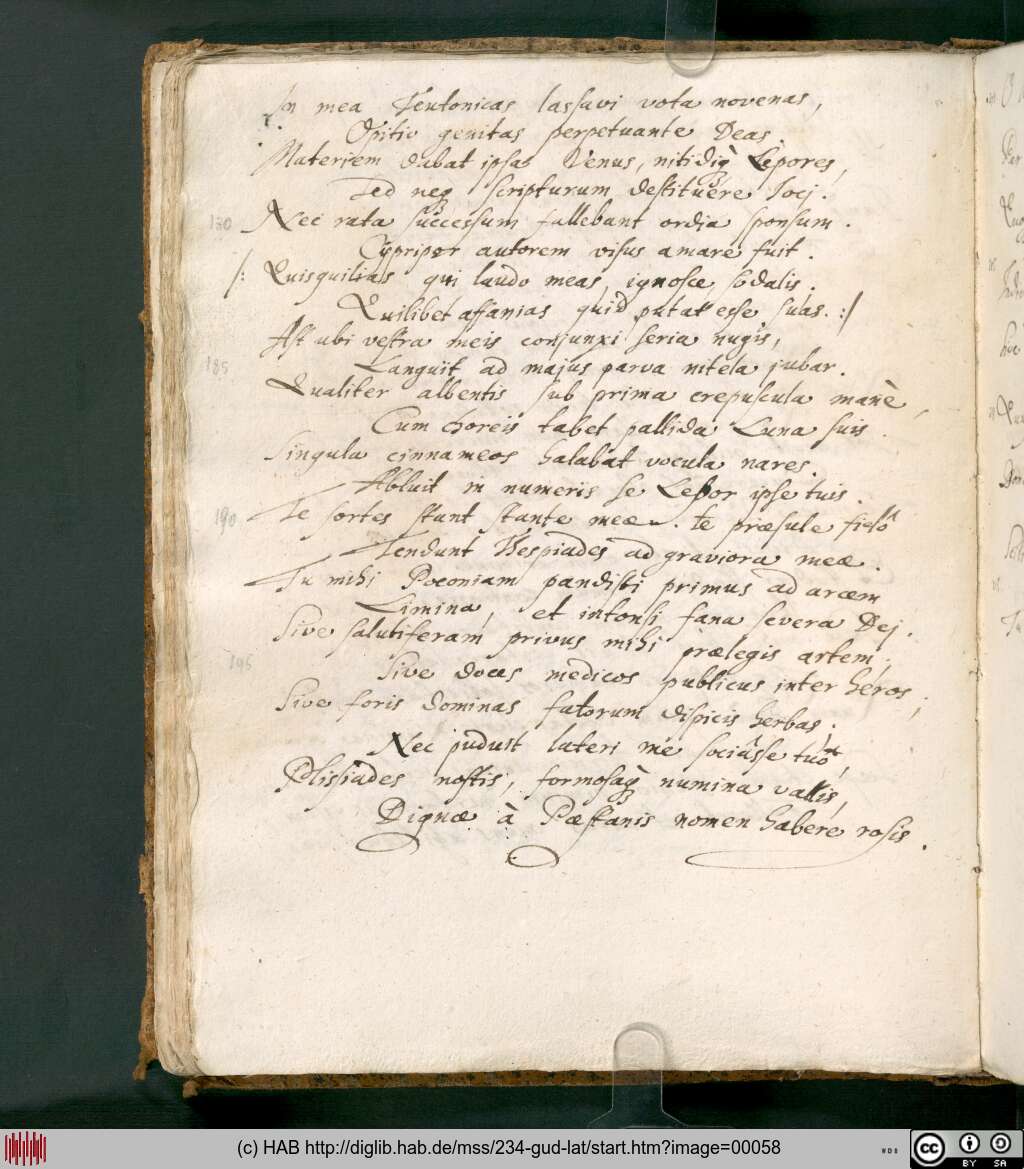 In mea Teutonicas lassavi vota novenas,
Opitio genitas perpetuante Deas.
Materiem dabat ipsas Venus, nitidiq̀ Lepores,
Sed neq scripturum destituêre Jocj.
130 Nec rata successum fallebant ordia sponsum.
Cypripor autorem visus amare fuit.
/: Quisquilias qui laudo meas, ignosce sodalis.
Quilibet affanias quid putat esse suas. :/
Ast ubi vestra meis conjunxi seria nugis,
185 Languit ad majus parva nitela jubar.
Qualiter albentis sub prima crepuscula manè,
Cum choreis tabet pallida Luna suis.
Singula cinnameos halabat vocula nares.
Abluit in numeris se Lepor ipse tuis.
190 Te sortes stant stante meæ. te præsule
Tendunt Thespiades ad graviora meæ.
Tu mihi Poeoniam pandisti primus ad arcem
Limina, et intonsi fana severa Dej.
Sive salutiferam privus mihi prælegis artem;
195 Sive doces medicos publicus inter heros,
Sive foris dominas fatorum dispicis herbas;
Nec puduit lateri me sociâsse tuo,
Plissiades nostis, formosaq̀ numina vallis,
Dignæ à Pæstanis nomen habere rosis.
(c) HAB http://diglib.hab.de/mss/234-gud-lat/start.htm?image=00058
cc BY SA